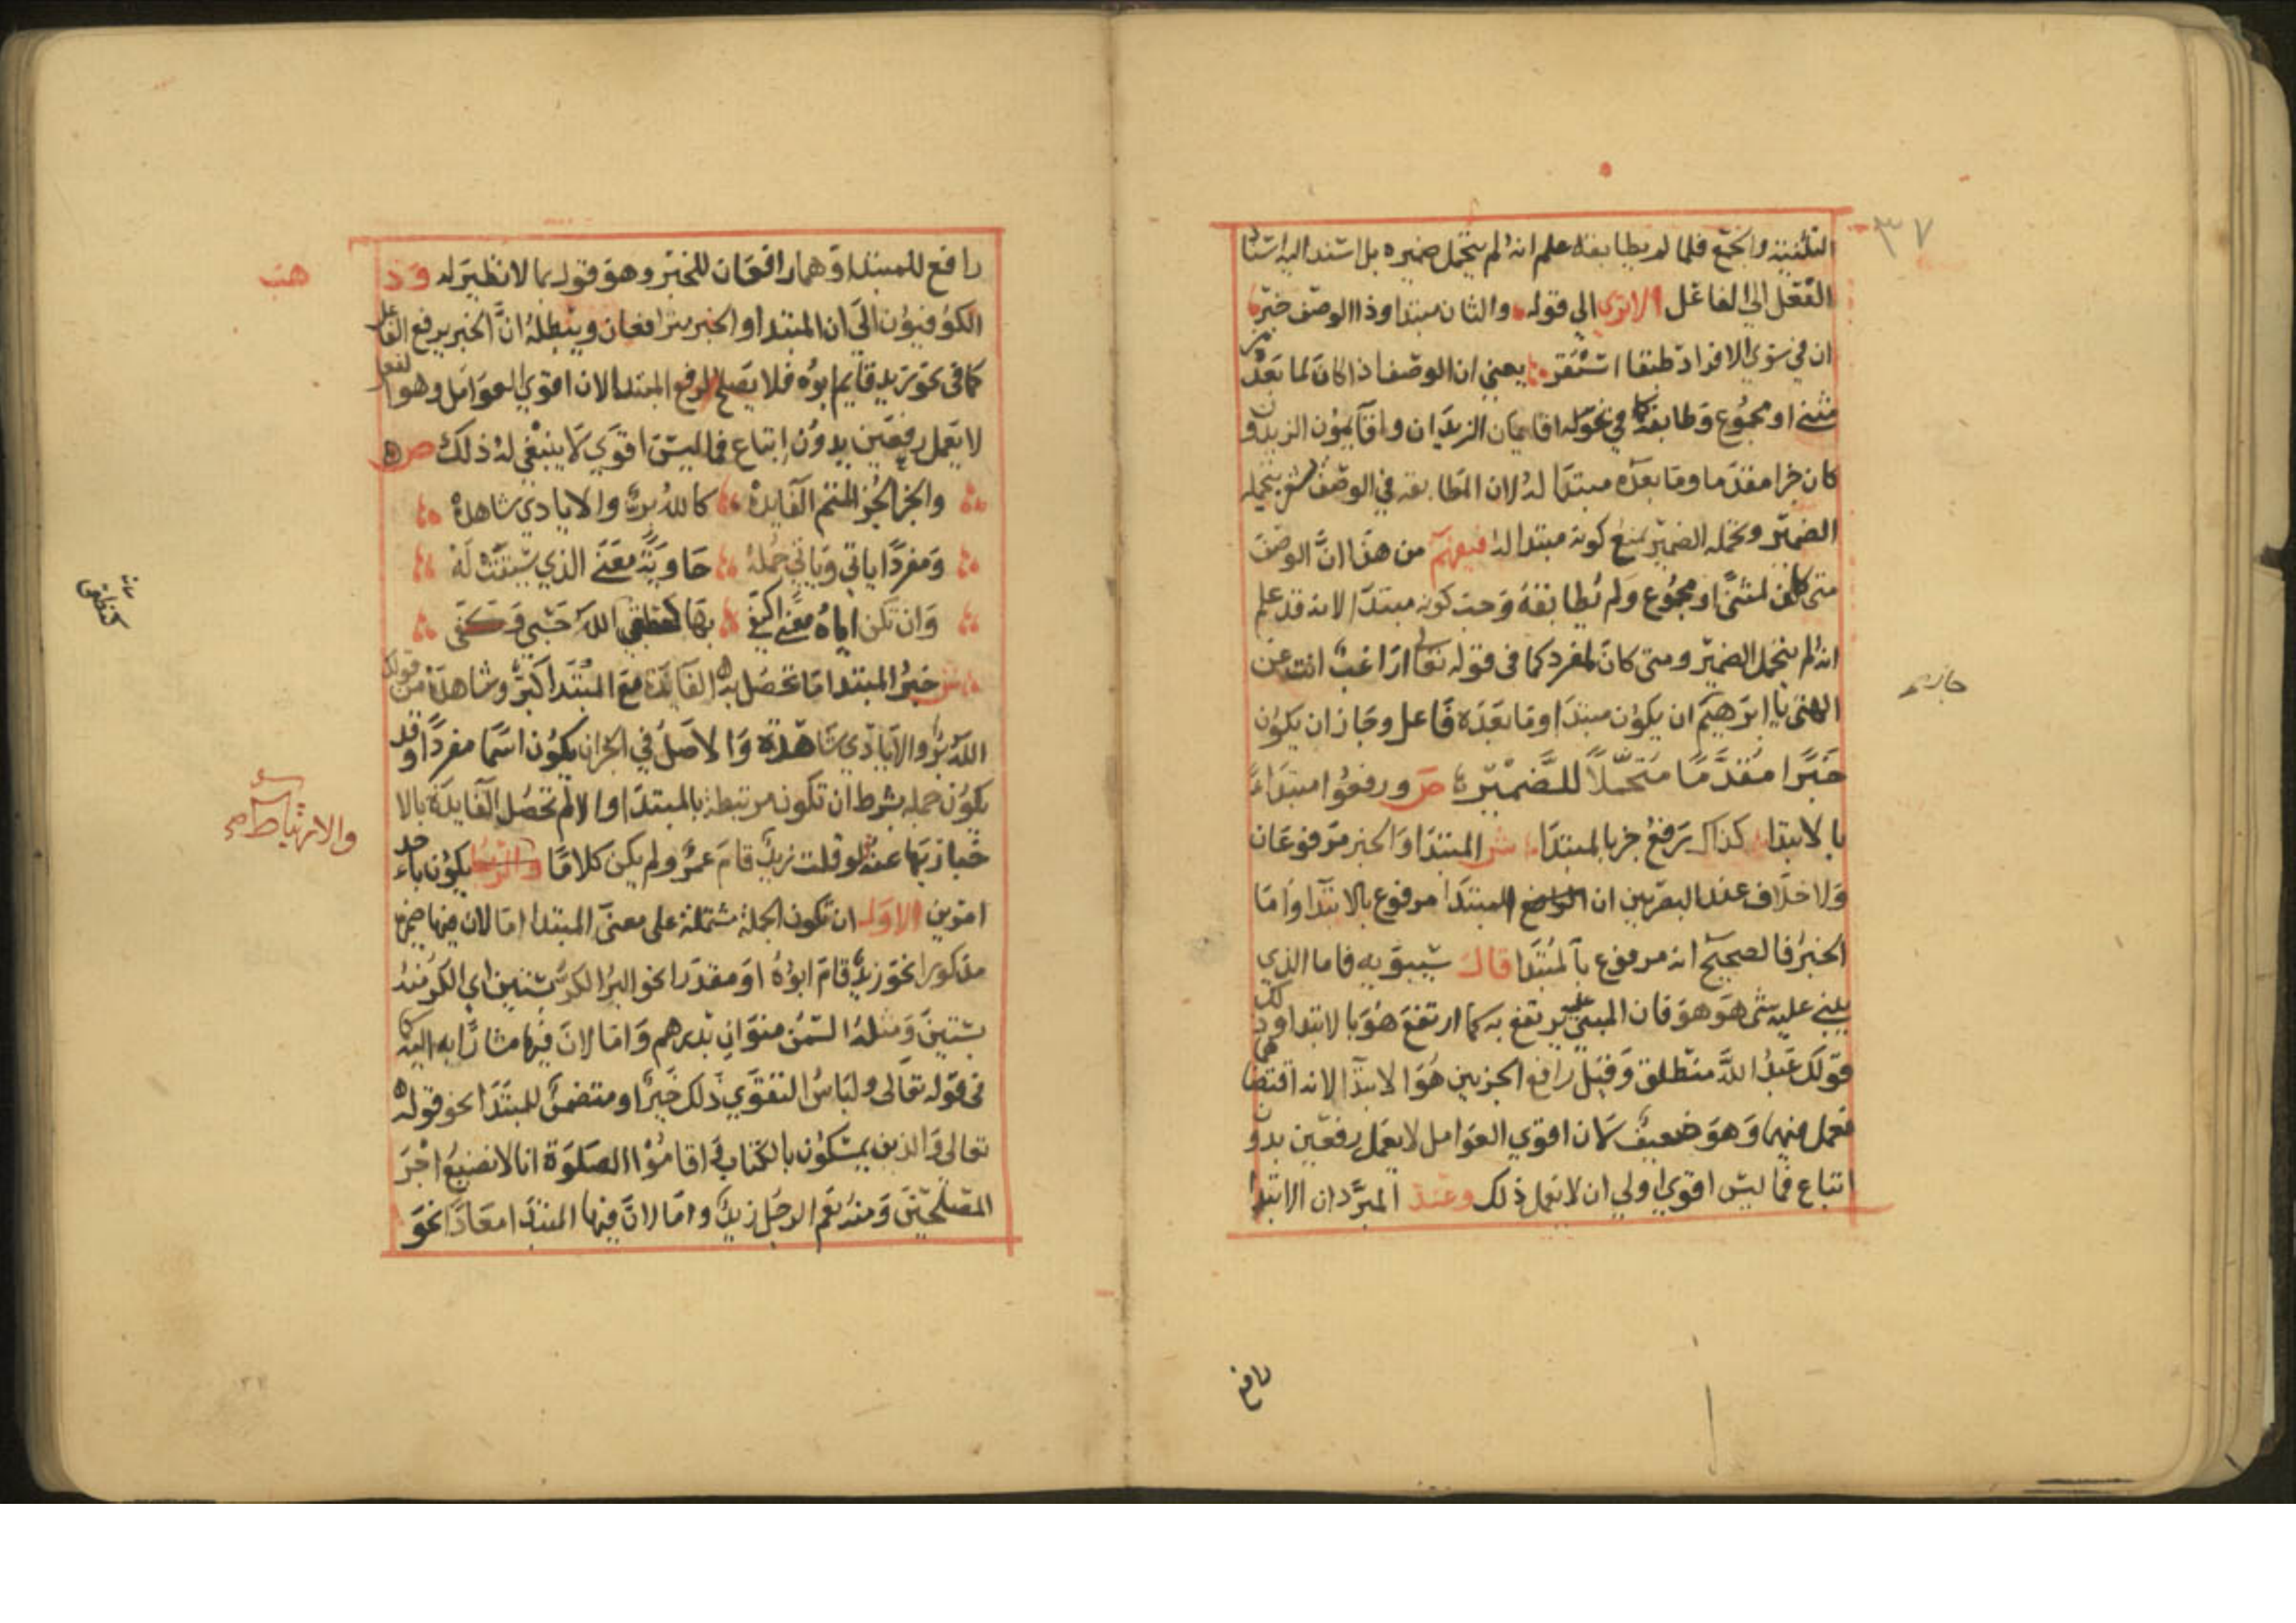 ٣٧
التثنية والجمع فلما لم يطابقه علم انه لم يتحمل ضميره بل اسند اليه اسناد
الفعل الى الفاعل الا ترى الى قوله والثان مبتدا وذا الوصف خبر
ان في سوى الافراد طبقا استقر يعني ان الوصف اذا كان لما بعده من
مثنى او مجموع وطابقه كما في نحو له اقايمان الزيدان واقايمون الزيدون
كان خبرا مقدما وما بعده مبتدا له لان المطابقة في الوصف تشعر بتحمله
الضمير وتحمله الضمير يمنع كونه مبتدا لما فيفهم من هذا ان الوصف
متى كان لمثنى او مجموع ولم يطابقه وجب كونه مبتدا لانه قد علم
انه لم يتحمل الضمير ومتى كان لمفرد كما في قوله تعالى اراغب انت عن
الهتى يا ابرهيم ان يكون مبتدا وما بعده فاعل وجاز ان يكون
جايز
خبرا مقدما متحملا للضمير ص ورفعوا مبتداء
بالابتدا كذاك رفع خبر بالمبتدا ش المبتدا والخبر مرفوعان
ولا خلاف عند البصريين ان المبتدا مرفوع بالابتدا واما
الخبر فالصحيح انه مرفوع بالمبتدا قال سيبويه فاما الذي
يبنى عليه شى هو هو فان المبني عليه يرتفع به كما ارتفع هو بالابتدا وذلك
قولك عبد الله منطلق وقيل رافع الجزءين هو الابتدا لانه اقتضاهما
فعمل فيهما وهو ضعيف لان اقوي العوامل لا يعمل رفعين بدون
اتباع فما ليس اقوي اولى ان لا يعمل ذلك وعند المبرد ان الابتدا
رافع
رافع للمبتدا وهما رافعان للخبر وهو قول بما لا نظير له وذ
هب
الكوفيون الى ان المبتدا والخبر مترافعان ويبطله ان الخبر يرفع الفاعل
كما في نحو زيد قايم ابوه فلا يصلح لرفع المبتدا لان اقوي العوامل وهو الفعل
لا يعمل رفعين بدون اتباع فما ليس اقوي لا ينبغي له ذلك ص
والخبر الجزء المتم الفايدة كالله بر والايادي شاهدة
ومفردا ياتي وياتي جملة حاوية معنى الذي سيقت له
وان تكن اياه معنى اكتفى بها كنطقي الله حسبي وكفى
ش خبر المبتدا ما تحصل به الفايدة مع المبتدا كبر وشاهدة من قولك
الله بر والايادي شاهدة والاصل في الخبر ان يكون اسما مفردا وقد
يكون جملة بشرط ان تكون مرتبطة بالمبتدا والا لم تحصل الفايدة بالا
خبار بها عنه لو قلت زيد قام عمرو لم يكن كلاما والربط يكون باحد
والارتباط صح
امرين الاول ان تكون الجملة مشتملة على معنى المبتدا اما لان فيها ضميره
مذكورا نحو زيد قام ابوه او مقدرا نحو البر الكر بستين اي الكر منه
بستين ومثله السمن منوان بدرهم واما لان فيها مشارا به اليه كما
في قوله تعالى ولباس التقوي ذلك خير او متضمن للمبتدا نحو قوله
تعالى والذين يمسكون بالكتاب واقاموا الصلوة انا لا نضيع اجر
المصلحين ومنه نعم الرجل زيد واما لان فيها المبتدا معادا نحو